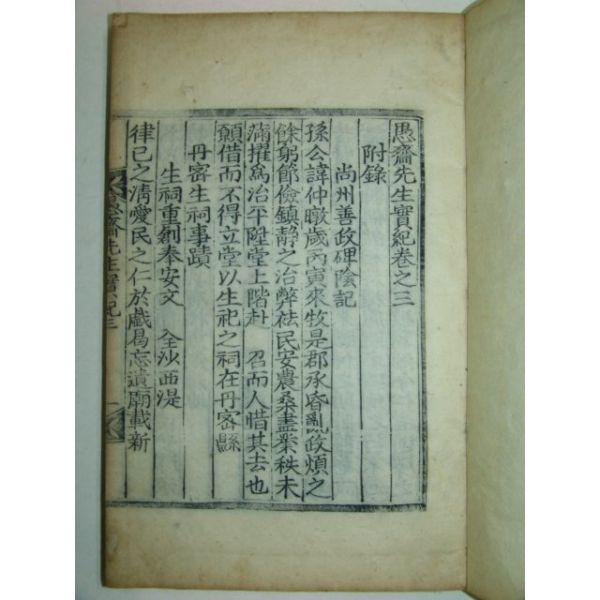 愚齋先生實紀卷之三
附錄
尙州善政碑陰記
孫公諱仲暾歲丙寅來牧是郡承昏亂政煩之
餘躬節儉鎭靜之治弊祛民安農桑盡業秩未
滿擢爲治平陞堂上階赴 召而人惜其去也
願借而不得立堂以生祀之祠在丹密縣
丹密生祠事蹟
生祠重創奉安文 全沙西湜
律已之淸愛民之仁於戲曷忘遺廟載新
愚齋先生實紀三